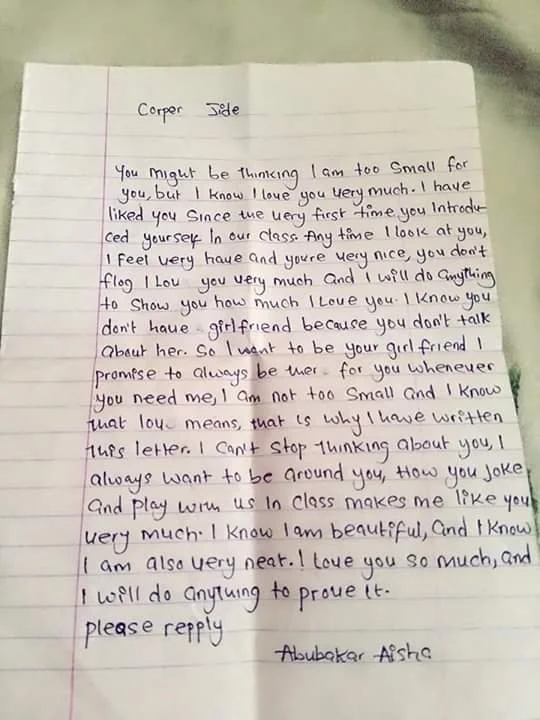 Corper Jide
You might be thinking I am too small for
you, but I know I love you very much. I have
liked you since the very first time you introdu-
ced yourself in our class. Any time I look at you,
I feel very have and you're very nice, you don't
flog I Lov you very much and I will do anything
to show you how much I Love you. I know you
don't have girlfriend because you don't talk
about her. So I want to be your girl friend I
promise to always be ther for you whenever
you need me, I am not too small and I know
that lov means, that is why I have written
this letter. I can't stop thinking about you, I
always want to be around you, How you Joke
and play with us in class makes me like you
very much. I know I am beautiful, and I know
I am also very neat. I love you so much, and
I will do anything to prove it.
please repply
Abubakar Aisha